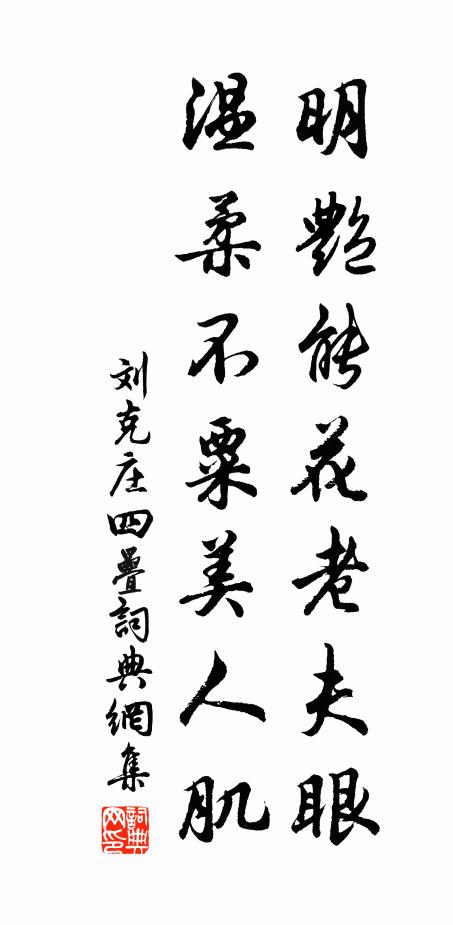 明艷能花老夫眼
温柔不粟美人肌
刘克庄四疊詞典網集
詞典网印